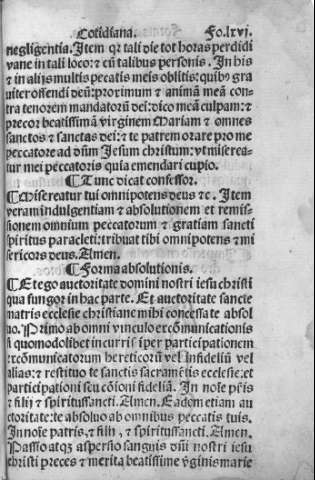 Cotidiana. Fo.lxvj.
negligentia. Item qr tali die tot horas perdidi
vane in tali loco: ⁊ cū talibus personis. In his
⁊ in alijs multis pecatis meis oblitis: quibꝰ gra
uiter offendi deū: proximum ⁊ animā meā con
tra tenorem mandatorū dei: dico meā culpam: ⁊
precor beatissimā virginem Mariam ⁊ omnes
sanctos ⁊ sanctas dei: ⁊ te patrem orare pro me
peccatore ad dn̄m Jesum christum: vt miserea-
tur mei peccatoris quia emendari cupio.
¶ Tunc dicat confessor.
¶ Misereatur tui omnipotens deus ⁊c. Item
veram indulgentiam ⁊ absolutionem et remis-
sionem omnium peccatorum ⁊ gratiam sancti
spiritus paracleti: tribuat tibi omnipotens ⁊ mi
sericors deus. Amen.
¶ Forma absolutionis.
¶ Et ego auctoritate domini nostri iesu christi
qua fungor in hac parte. Et auctoritate sancte
matris ecclesie christiane mihi concessa te absol
uo. Primo ab omni vinculo excōmunicationis
si quomodolibet incurris iper participationem
excōmunicatorum hereticorū vel infideliū vel
alias: ⁊ restituo te sanctis sacramētis ecclesie: et
participationi seu cōioni fideliū. In noīe pr̄is
⁊ filij ⁊ spiritussancti. Amen. Eadom etiam au
ctoritate: te absoluo ab omnibus peccatis tuis.
In noīe patris, ⁊ filij, ⁊ spiritussancti. Amen.
Passio atqz aspersio sanguis dn̄i nostri iesu
christi preces ⁊ merita beatissime vginis marie